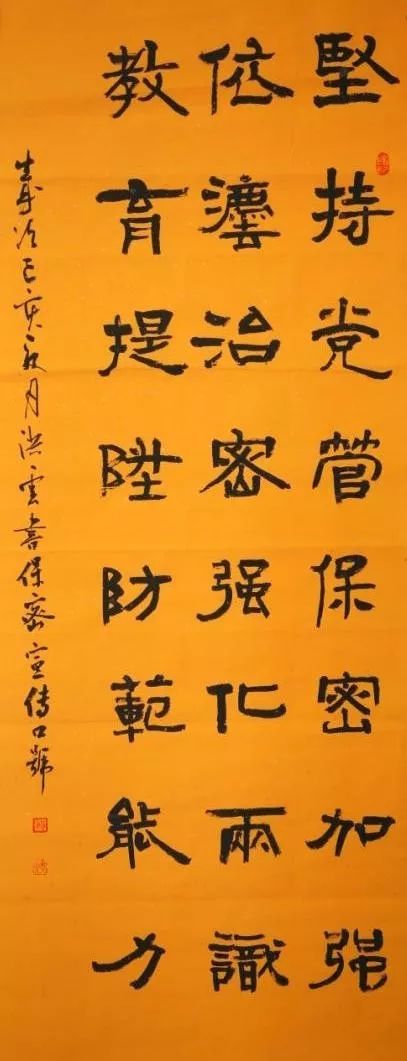 堅持党管保密加强
依灋治密强化兩識
教育提陞防範能力
歲次己亥月洪雲書保密宣傳口號